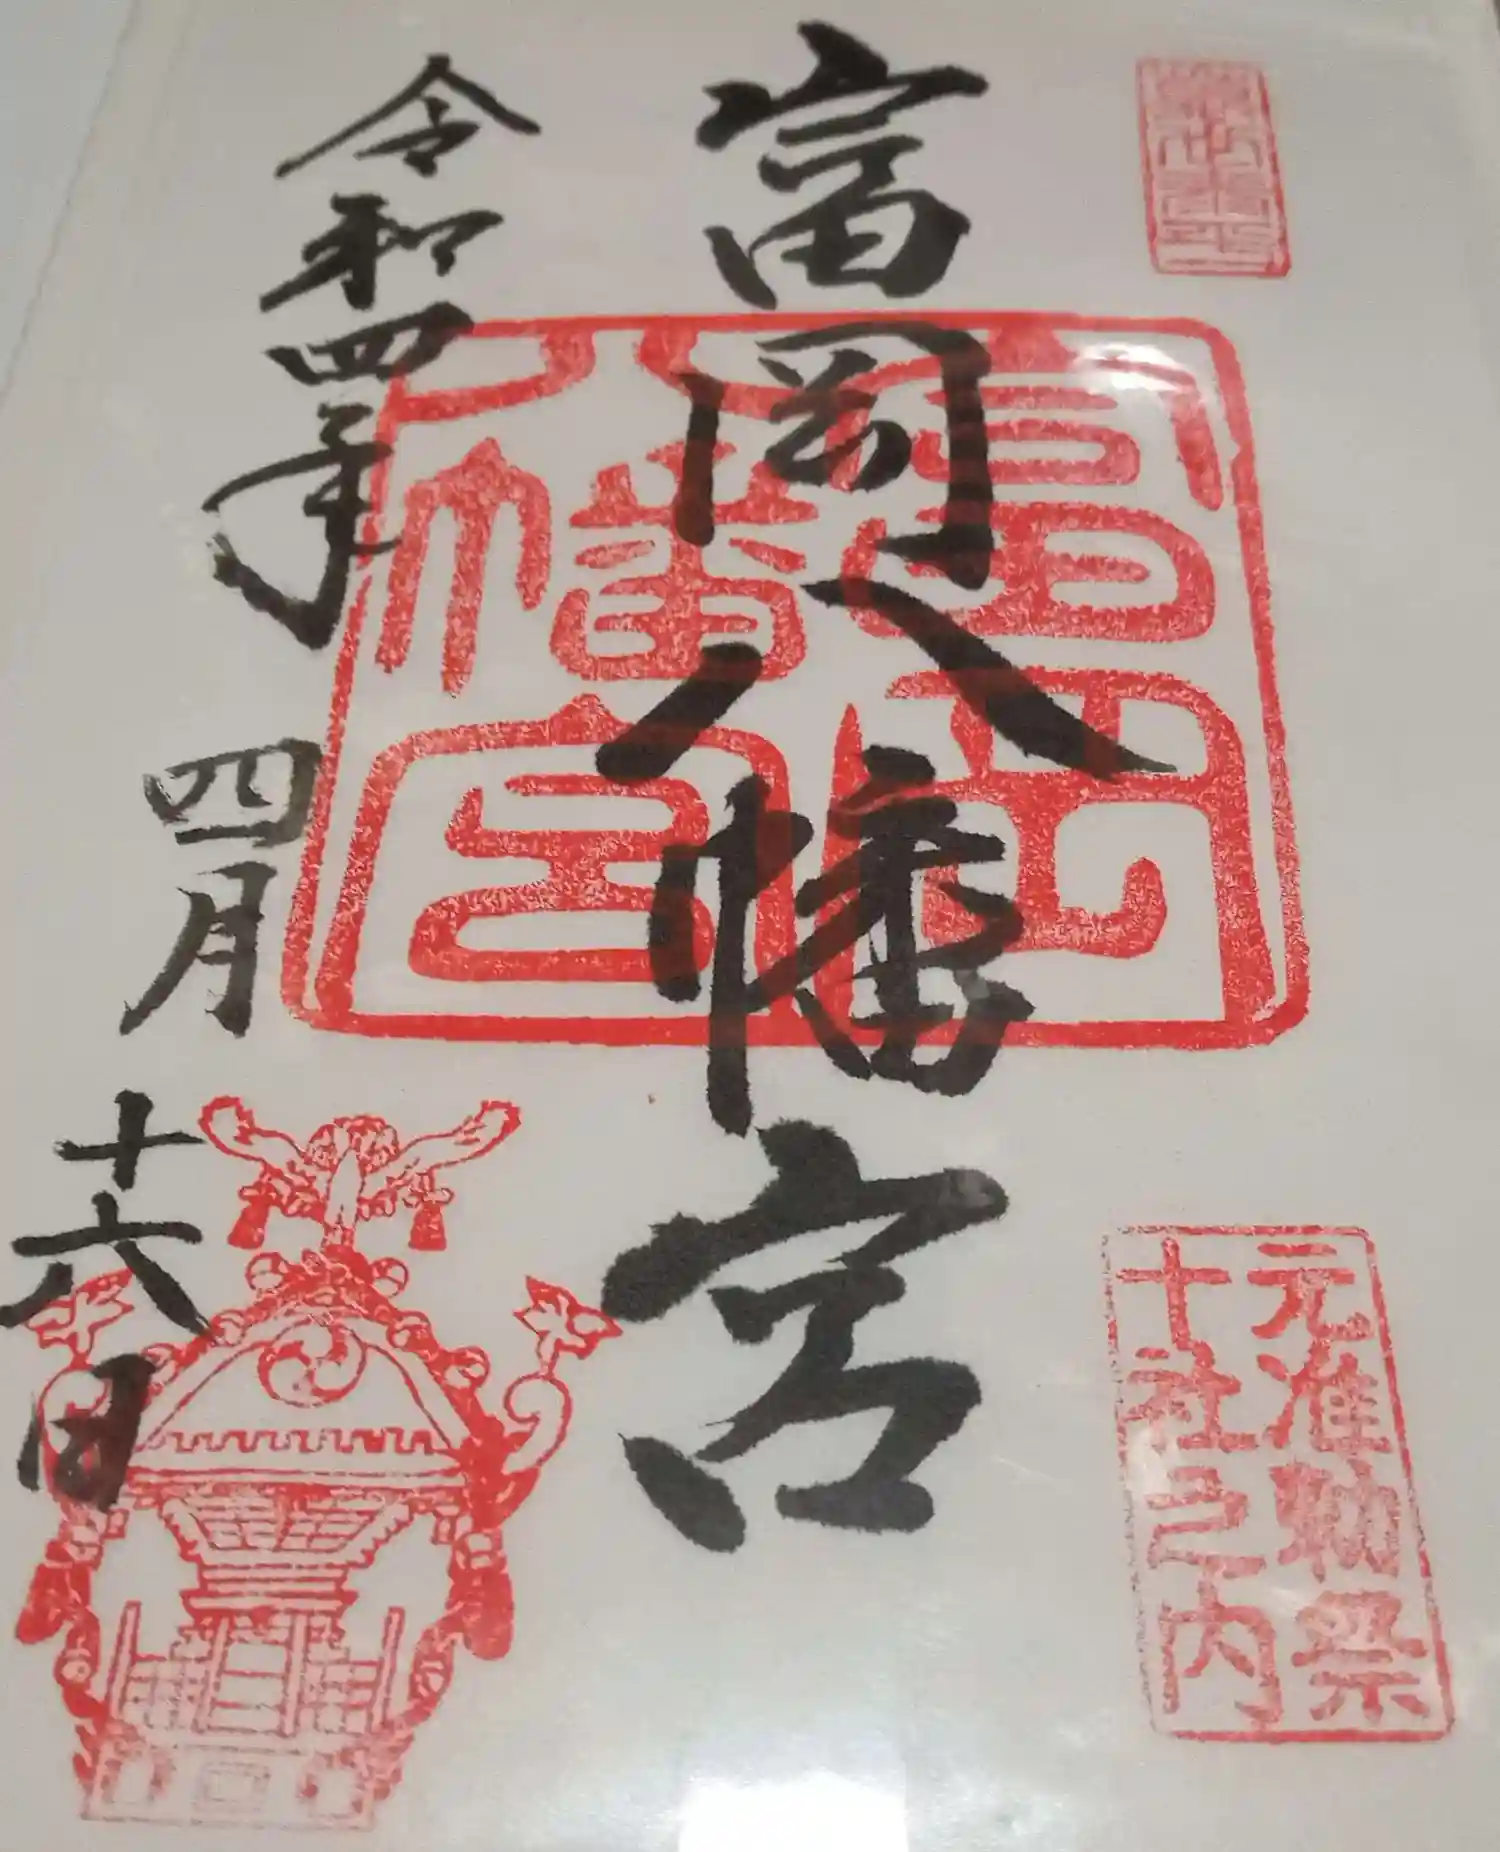 富岡八幡宮
富岡
八幡宮
元准勅祭
十社之内
令和四年
四月
十六日